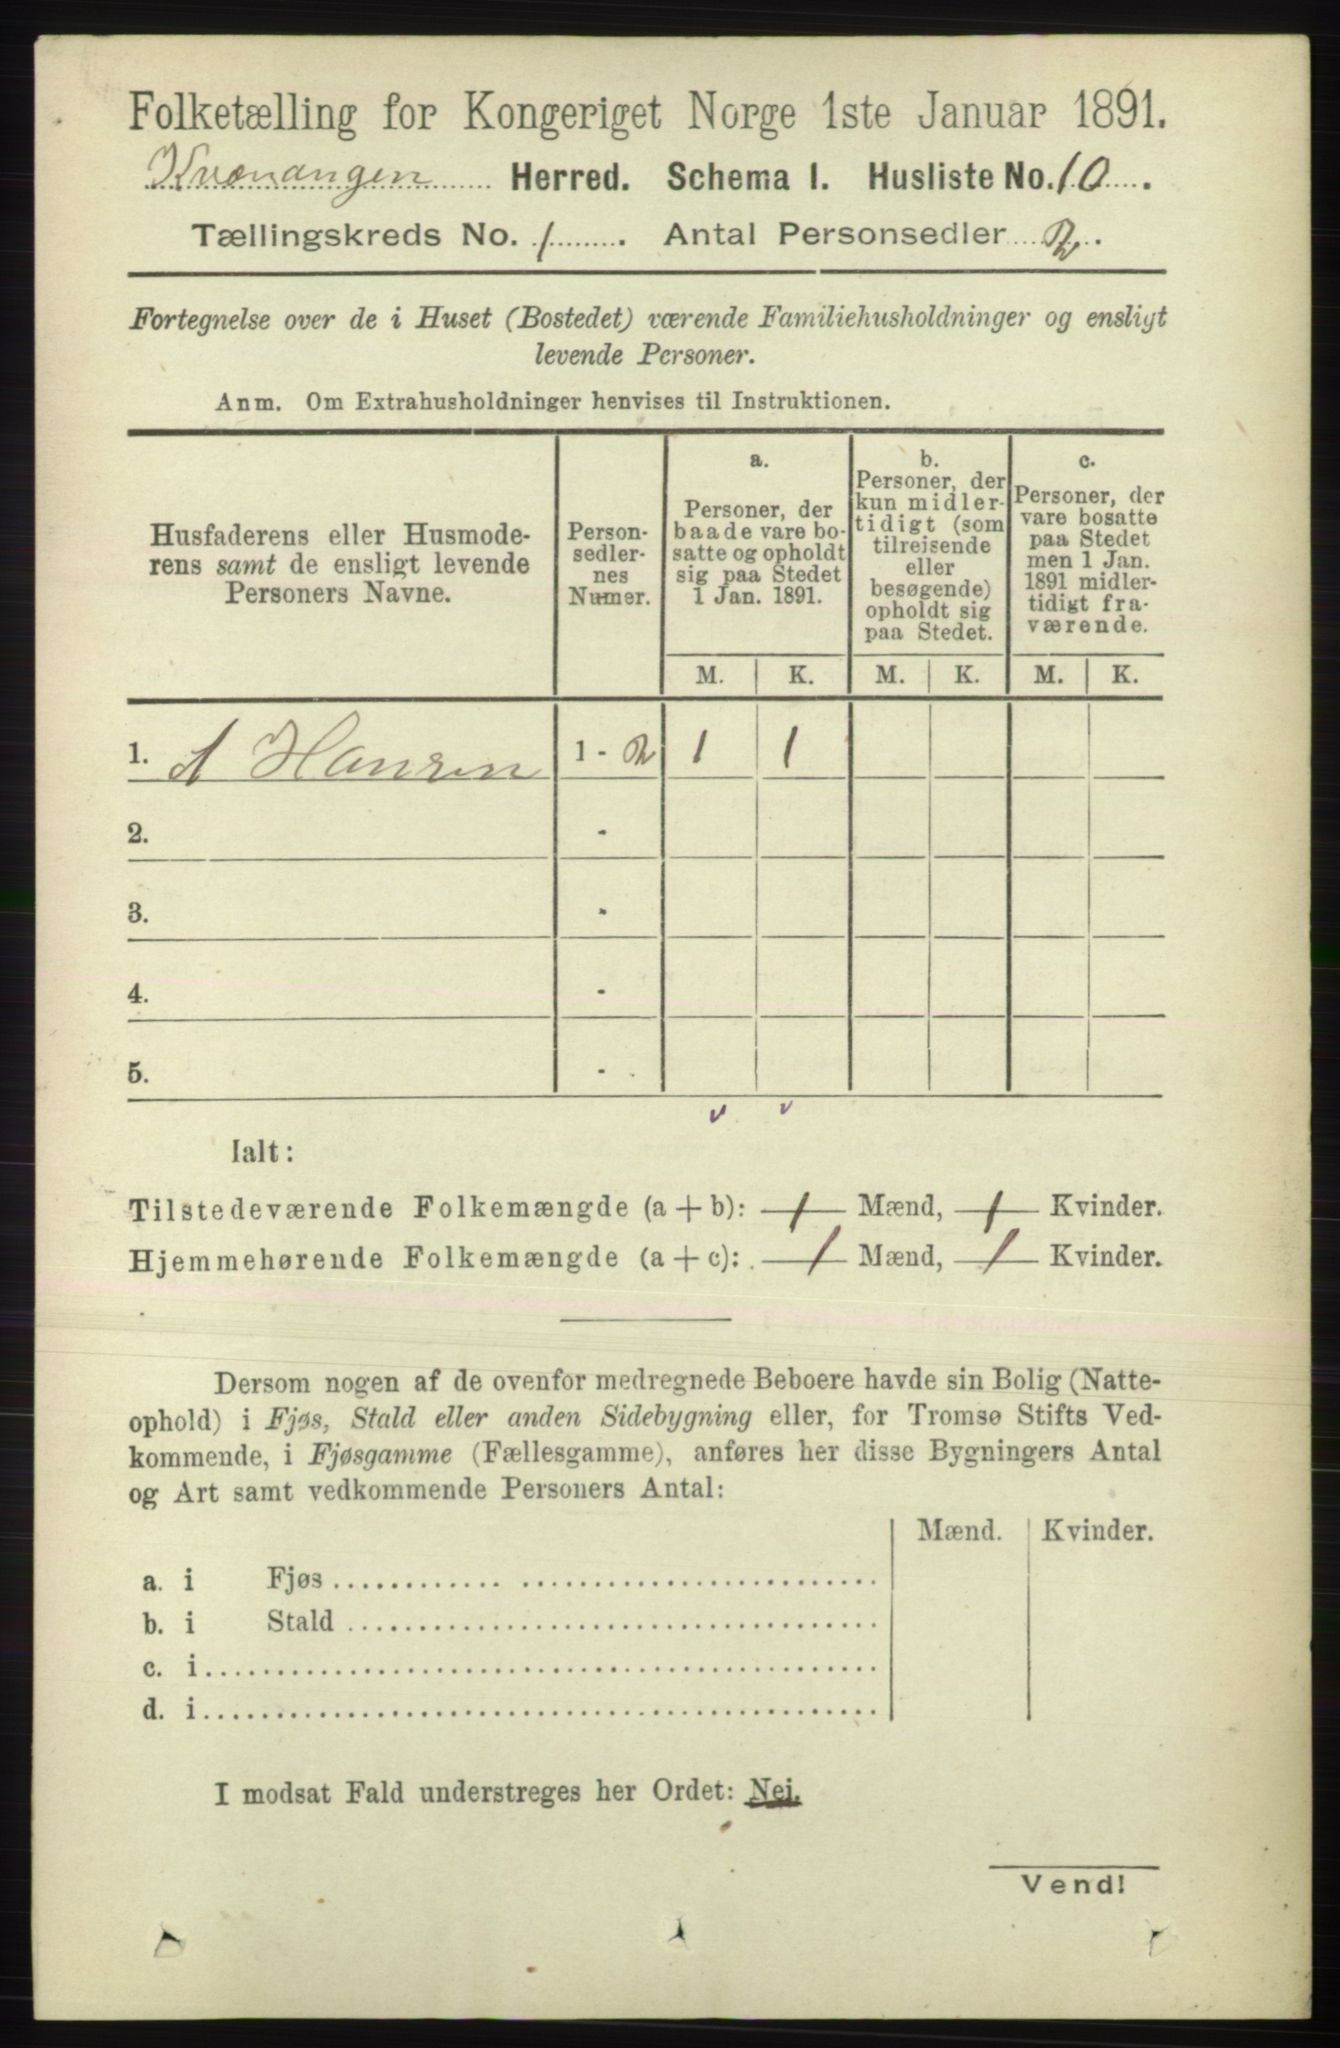 Folketælling for Kongeriget Norge 1ste Januar 1891.
Kvænangen Herred. Schema I. Husliste No. 10.
Tællingskreds No. 1. Antal Personsedler 2.
Fortegnelse over de i Huset (Bostedet) værende Familiehusholdninger og ensligt
levende Personer.
Anm. Om Extrahusholdninger henvises til Instruktionen.
Husfaderens eller Husmode-
rens samt de ensligt levende
Personers Navne.
Person-
sedler-
nes
Numer.
a.
Personer, der
baade vare bo-
satte og opholdt
sig paa Stedet
1 Jan. 1891.
b.
Personer, der
kun midler-
tidigt (som
tilreisende
eller
besøgende)
opholdt sig
paa Stedet.
c.
Personer, der
vare bosatte
paa Stedet
men 1 Jan.
1891 midler-
tidigt fra-
værende.
M. K. M. K. M. K.
1. A Hansen 1 - 2 1 1
2. -
3. -
4. -
5. -
Ialt:
Tilstedeværende Folkemængde (a + b): 1 Mænd, 1 Kvinder.
Hjemmehørende Folkemængde (a + c): 1 Mænd, 1 Kvinder.
Dersom nogen af de ovenfor medregnede Beboere havde sin Bolig (Natte-
ophold) i Fjøs, Stald eller anden Sidebygning eller, for Tromsø Stifts Ved-
kommende, i Fjøsgamme (Fællesgamme), anføres her disse Bygningers Antal
og Art samt vedkommende Personers Antal:
Mænd. Kvinder.
a. i Fjøs
b. i Stald
c. i
d. i
I modsat Fald understreges her Ordet: Nei.
Vend!